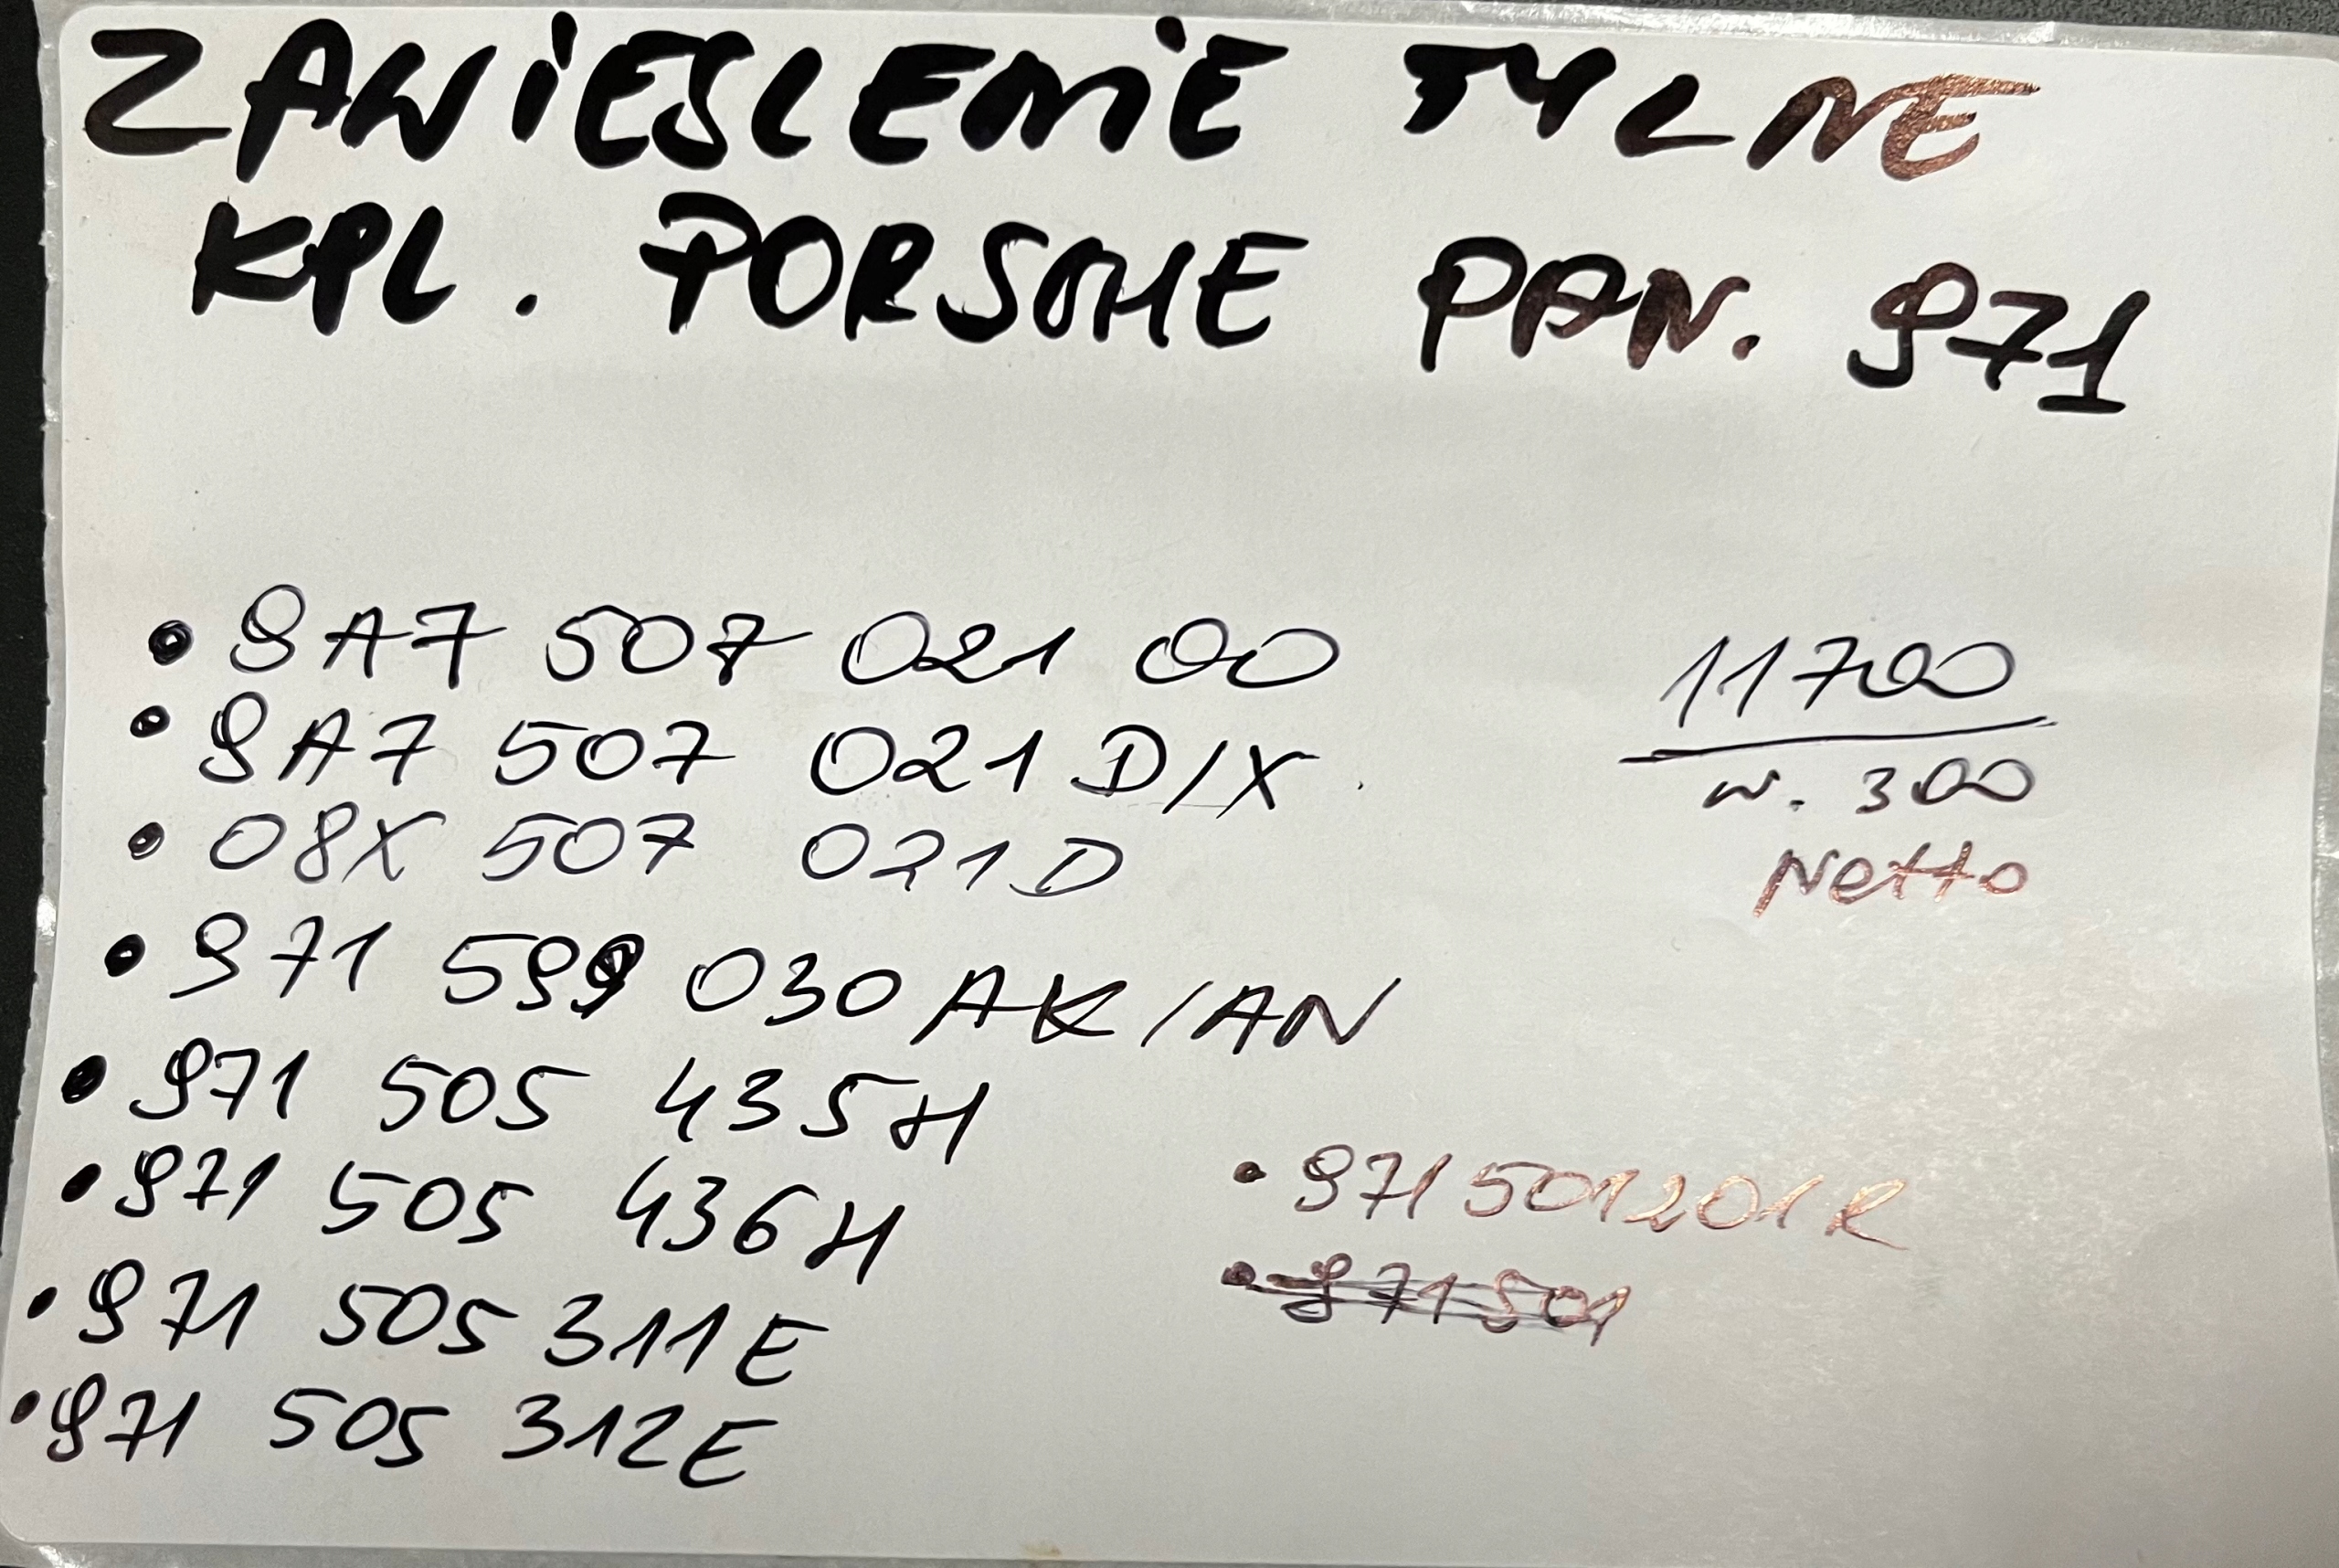 ZAWIESZENIE TYLNE
KPL. PORSCHE PAN. 971
• 9A7 507 021 00
• 9A7 507 021 D/X
• 08X 507 021 D
• 971 599 030 AK/AN
• 971 505 435 H
• 971 505 436 H
• 971 505 311 E
• 971 505 312 E
11700
w. 300
Netto
• 971 501 201 R
• 971 501